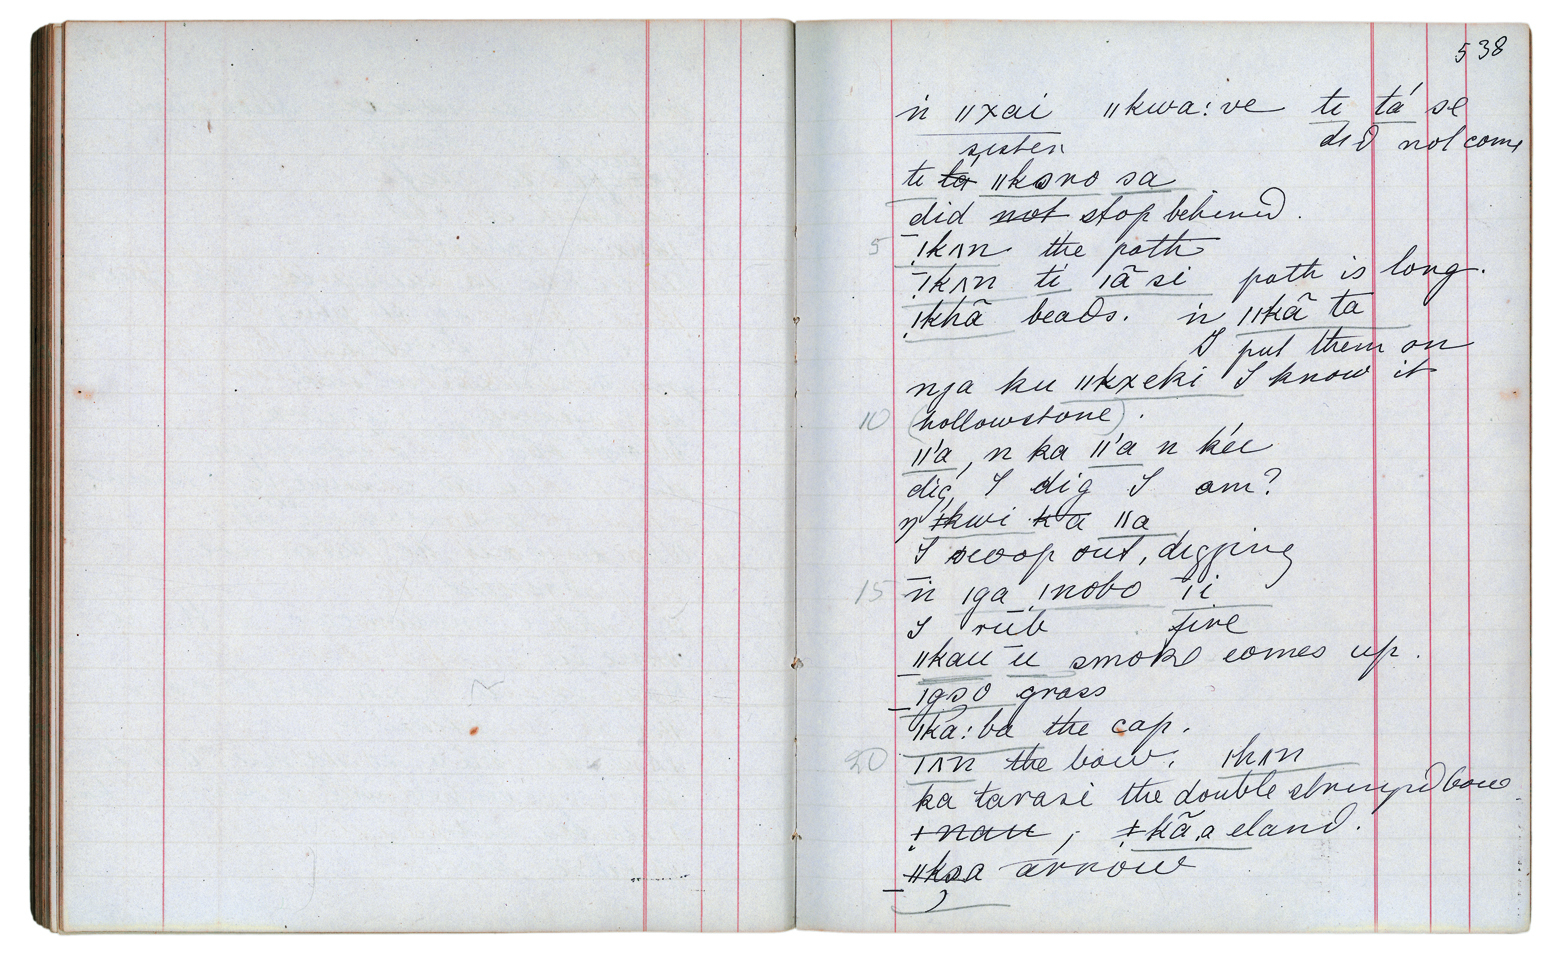 538
ṅ ǁxai ǁkwa:ve te tá se
sister did not come
te ǁkɔro sa
did not stop behind.
5 ǃkʌn the path
ǃkʌn ti ǀã si path is long.
ǃkhã beads. ṅ ǁkã ta
I put them on
nga ku ǁkxeki I know it
10 (hollowstone).
ǁ'a, n ka ǁ'a n kée
dig, I dig I am?
ŋ ǂkwi ka ǁa
I scoop out, digging
15 n ǀga ǃnobo ǀi
I rub fire
ǁkau u smoke comes up.
ǀgɔo grass
ǀka:ba the cap.
20 ǀʌn the bow. ǀkʌn
ka tarasi the double stringed bow.
ǂnau, ǂkã,a eland.
ǁkɔa arrow